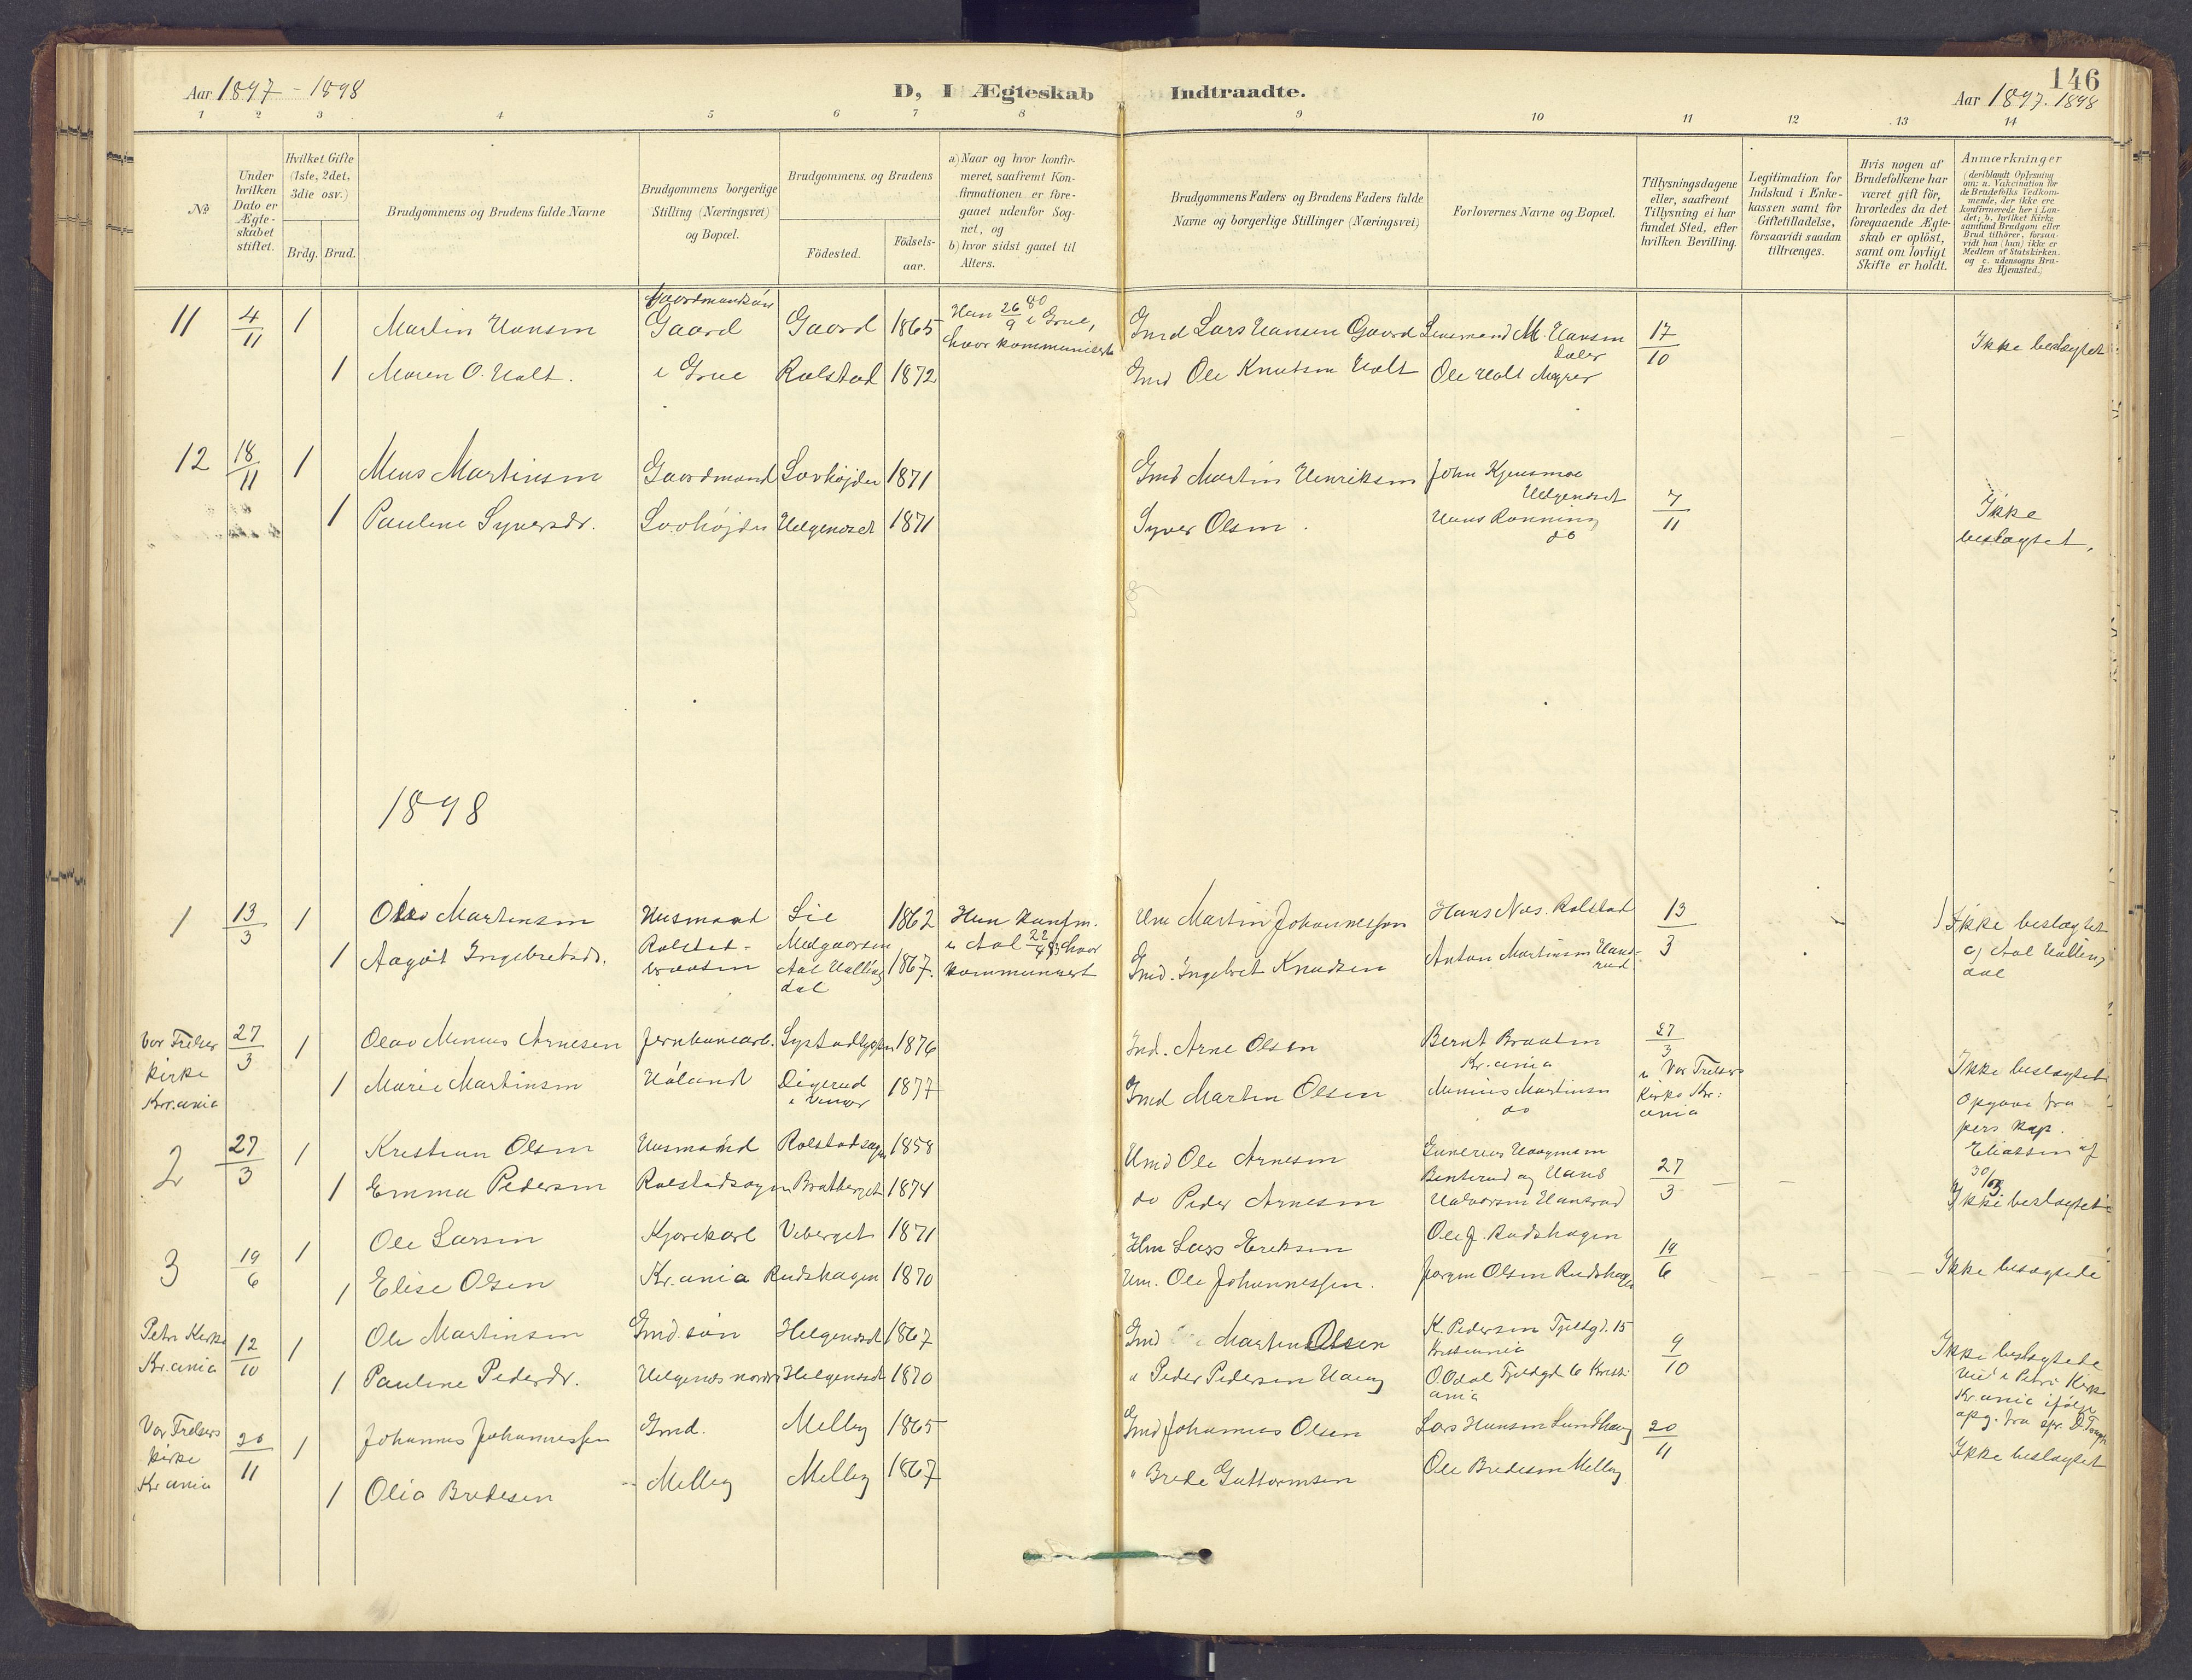 Aar 1897 - 1898
D, I Ægteskab Indtraadte.
146
Aar 1897. 1898
1 2 3 4 5 6 7 8 9 10 11 12 13 14
№
Under hvilken Dato er Ægteskabet stiftet.
Hvilket Gifte (1ste, 2det, 3die osv.)
Brdg. Brud.
Brudgommens og Brudens fulde Navne
Brudgommens borgerlige Stilling (Næringsvei) og Bopæl.
Brudgommens og Brudens
Födested.
Födselsaar.
a) Naar og hvor konfirmeret, saafremt Konfirmationen er foregaaet udenfor Sognet, og
b) hvor sidst gaaet til Alters.
Brudgommens Faders og Brudens Faders fulde Navne og borgerlige Stillinger (Næringsvei)
Forlovernes Navne og Bopæl.
Tillysningsdagene eller, saafremt Tillysning ei har fundet Sted, efter hvilken Bevilling.
Legitimation for Indskud i Enkekassen samt for Giftetilladelse, forsaavidt saadan tiltrænges.
Hvis nogen af Brudefolkene har været gift för, hvorledes da det foregaaende Ægteskab er oplöst, samt om lovligt Skifte er holdt.
Anmærkninger (deriblandt Oplysning om: a. Vakcination for de Brudefolks Vedkommende, der ikke ere konfirmerede her i Landet; b. hvilket Kirkesamfund Brudgom eller Brud tilhörer, forsaavidt han (hun) ikke er Medlem af Statskirken, og c. udensogns Brudes Hjemsted.)
11 4/11 1 Martin Hansen Gaardmandsön Gaard Gaard 1865 Han 26/9 80 i Grue, hvor kommunicert Gmd Lars Hansen Gaard Lensmand M. Hansen 17/10 Ikke beslægtet
1 Maren O. Holt. i Grue Rolstad 1872 Gmd Ole Knutsen Holt Ole Holt
12 18/11 1 Mens Martinsen Gaardmand Lovhöjden 1871 Gmd Martin Henriksen John Kjensmoe Helgenæset 7/11 Ikke beslægtet.
1 Pauline Syversdr. Lovhöjden Helgenæset 1871 Syver Olsen. Hans Rönning do
1898
1 13/3 1 Olavo Martinsen Husmand Lie 1862 Hun konfm. i Aal 22/9 83 hvor kommunicert Hm Martin Johannessen Hans Næs. Rolstad 13/3 Ikke beslægtet c) Aal Hallingdal
1 Aagot Ingebretsdr. Rolstad-braaten Aal Hallingdal 1867. Gmd. Ingebret Knudsen Anton Martinsen
Vor Frelser kirke Kr.ania 27/3 1 Olavo Minius Arnesen Jernbanearb. 1876 Ind. Arne Olsen Bernt Braaten Kr.ania 27/3 i Vor Frelsers Kirke Kr:ania Ikke beslægtet Opgave fra pers kap. Eliassen af 30/3
1 Marie Martinsen Höland Digerud 1877 Gmd Martin Olsen Minius Martinsen do
2 27/3 1 Kristian Olsen Husmand Rolstadsagen 1858 Hmd Ole Arnesen Gunerius Haagensen Benterud og Hans 27/3 Ikke beslægtet
1 Emma Pedersen Rolstadsagen Bratberget 1874 do Peder Arnesen Halvorsen Hansrud
3 19/6 1 Ole Larsen Kjörekarl Veberget 1871 Hm Lars Eriksen Ole J. Rudshagen 19/6 Ikke beslægtede
1 Elise Olsen Kr.ania Rudshagen 1870 Hm. Ole Johannessen. Jörgen Olsen Rudshagen
Petri Kirke Kr.ania 12/10 1 Ole Martinsen Gmd. sön Helgenæset 1867 Gmd Martin Olsen K. Pedersen Tjeldgd. 15 Kristiania 9/10 Ikke beslægtede viet i Petri Kirke Kr.ania ifölge opg. fra
1 Pauline Pedersdr. Helgenæs nordre Helgenæset 1870 " Peder Pedersen Haug O. Odal Tjeldgd 6 Kristiania
Vor Frelsers kirke Kr.ania 20/11 1 Johannes Johannessen Gmd. Melby 1865 Gmd Johannes Olsen Lars Hansen Lundhaug 20/11 Ikke beslægtet
1 Olia Bredesen Melby Melby 1867 " Brede Guttormsen Ole Bredesen Melby